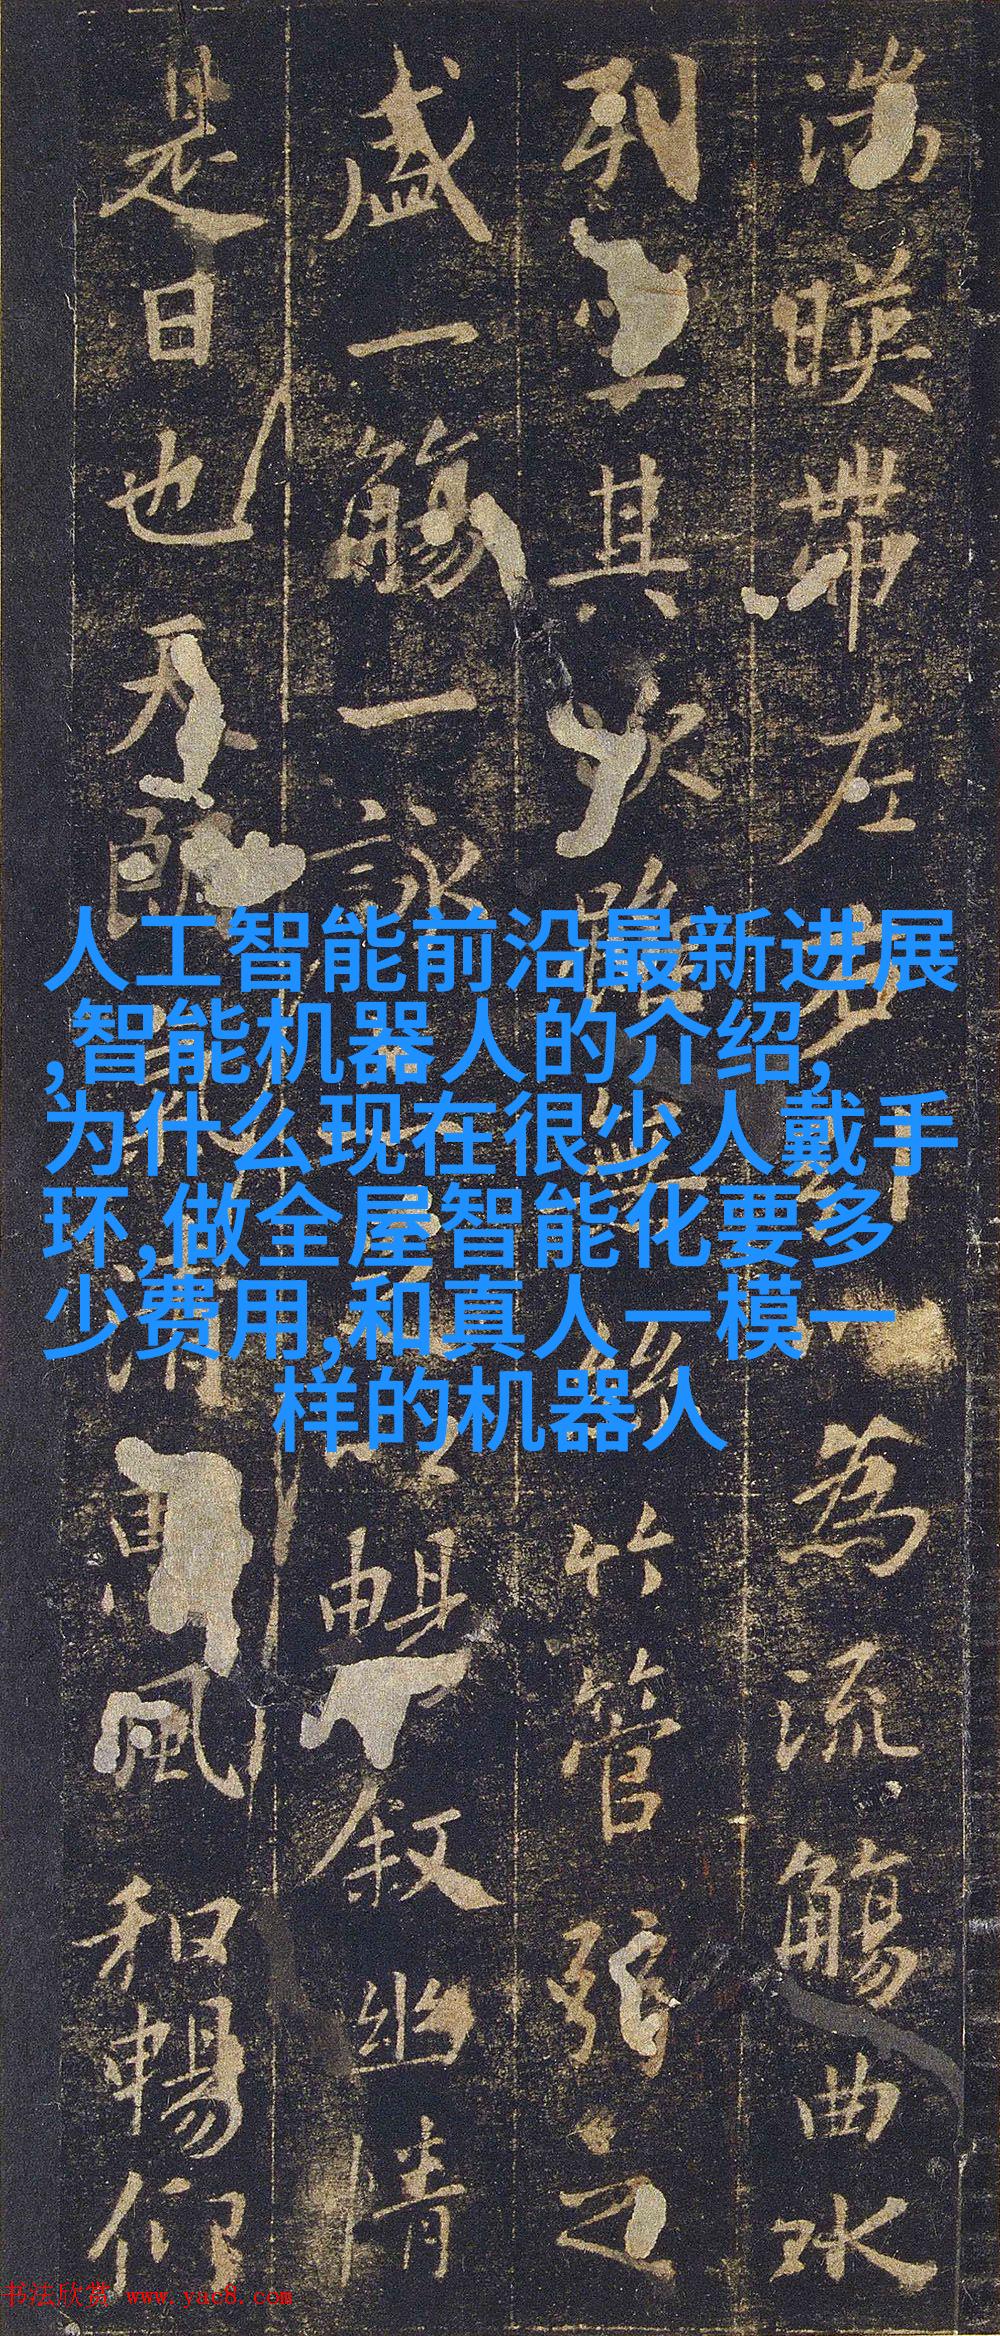 湍暎帶左右為流觴曲水
列坐其次雖無絲竹管弦之
盛一觴一詠暢敘幽情
是日也天朗氣清惠風和暢仰
人工智能前沿最新进展
,智能机器人的介绍,
为什么现在很少人戴手
环,做全屋智能化要多
少费用,和真人一模一
样的机器人
书法欣赏 www.yac8.com